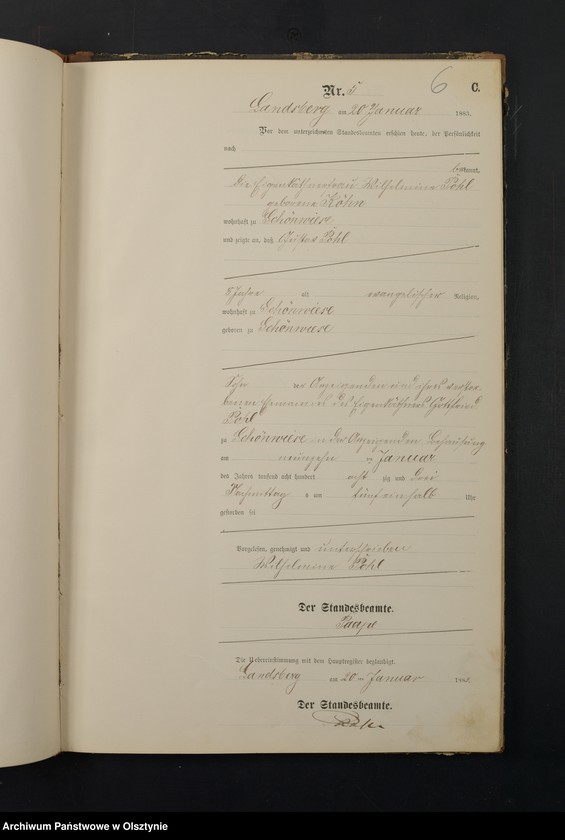 6 C.
Nr. 5
Landsberg am 20 Januar 1883.
Vor dem unterzeichneten Standesbeamten erschien heute, der Persönlichkeit
nach
bekannt,
die Eigenkäthnerfrau Wilhelmine Pöhl
geborene Köhn
wohnhaft zu Schönwiese
und zeigte an, daß Gustav Pöhl
8 Jahre alt evangelischer Religion,
wohnhaft zu Schönwiese
geboren zu Schönwiese
Sohn der Anzeigenden und ihres verstor-
benen Ehemannes des Eigenkäthners Gottfried
Pöhl
zu Schönwiese in der Anzeigenden Behausung
am neunzehn ten Januar
des Jahres tausend acht hundert acht zig und drei
Nachmittag s um fünf einhalb Uhr
gestorben sei
Vorgelesen, genehmigt und unterschrieben
Wilhelmine Pöhl
Der Standesbeamte.
Die Uebereinstimmung mit dem Hauptregister beglaubigt.
Landsberg am 20 ten Januar 1883.
Der Standesbeamte.
Archiwum Państwowe w Olsztynie